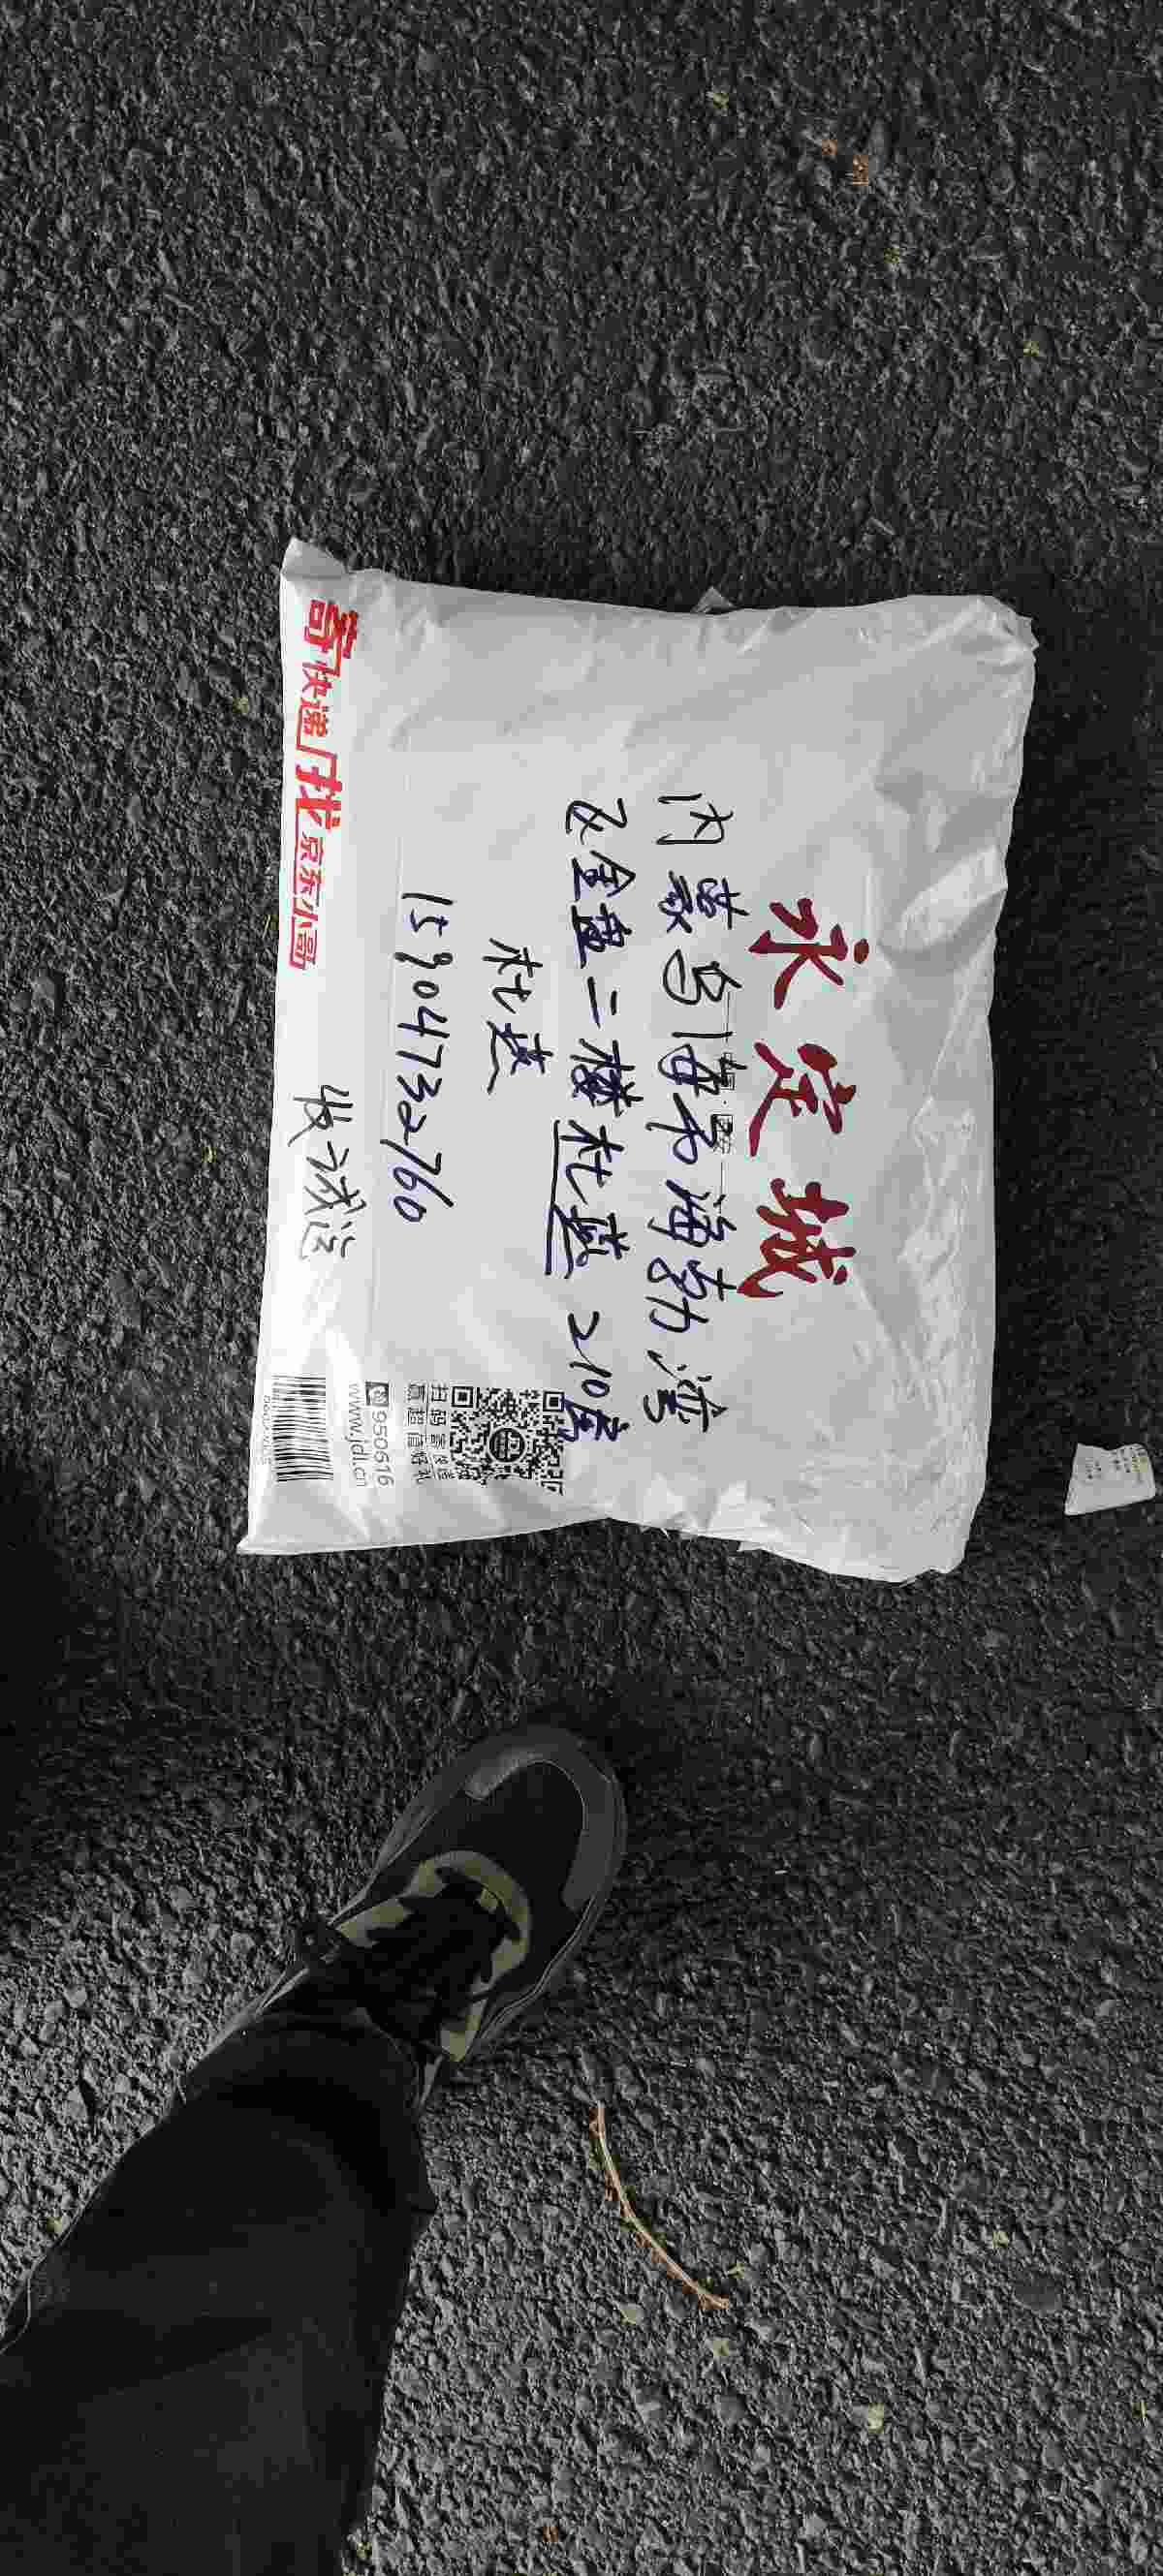 永定城
内蒙乌海市海勃湾
飞金直二楼杜燕 210房
杜燕
15904732760
收
寄快递 找京东小哥
扫码寄快递
赢超值好礼
950616
www.jdl.cn